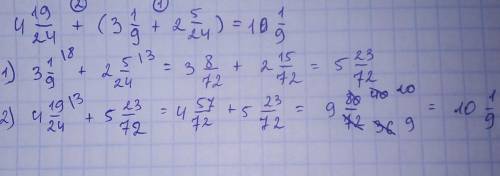 ② ①
4 19/24 + (3 1/9 + 2 5/24) = 10 1/9
1) 3 1/9 \8 + 2 5/24 \3 = 3 8/72 + 2 15/72 = 5 23/72
2) 4 19/24 \3 + 5 23/72 = 4 57/72 + 5 23/72 = 9 80/72 40/36 10/9 = 10 1/9